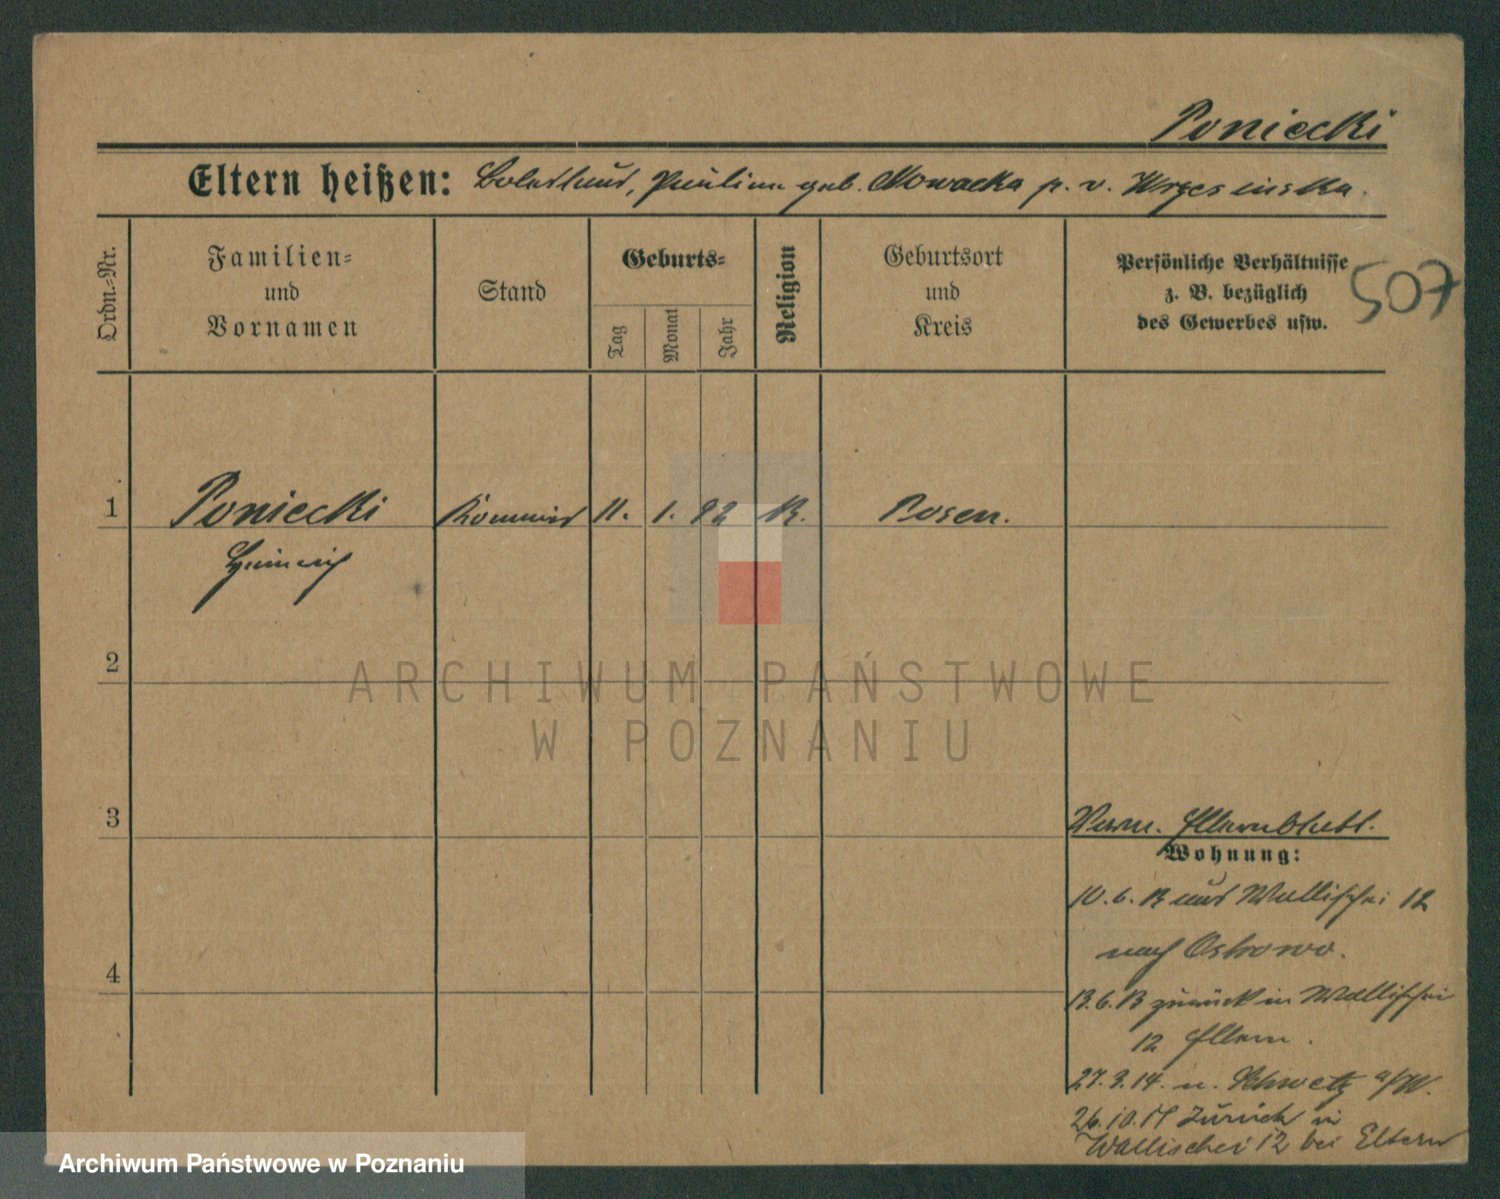 Poniecki
Eltern heißen: Boleslaus, Paulina geb. Nowacka p. v. Wrzesinska.
Ordn.-Nr.
Familien-
und
Vornamen
Stand
Geburts-
Tag
Monat
Jahr
Religion
Geburtsort
und
Kreis
Persönliche Verhältnisse
z. B. bezüglich
des Gewerbes usw.
507
1 Poniecki 11. 1. 92 K. Posen.
Heinrich
2
ARCHIWUM PAŃSTWOWE
W POZNANIU
3
Elternblatt.
Wohnung:
10.6.13 aus Wallischei 12
nach Ostrowo.
4
13.6.13 zurück in Wallischei
12 Eltern.
27.3.14. n. Schwetz a/W.
26.10.17 Zurück in
Wallischei 12 bei Eltern
Archiwum Państwowe w Poznaniu